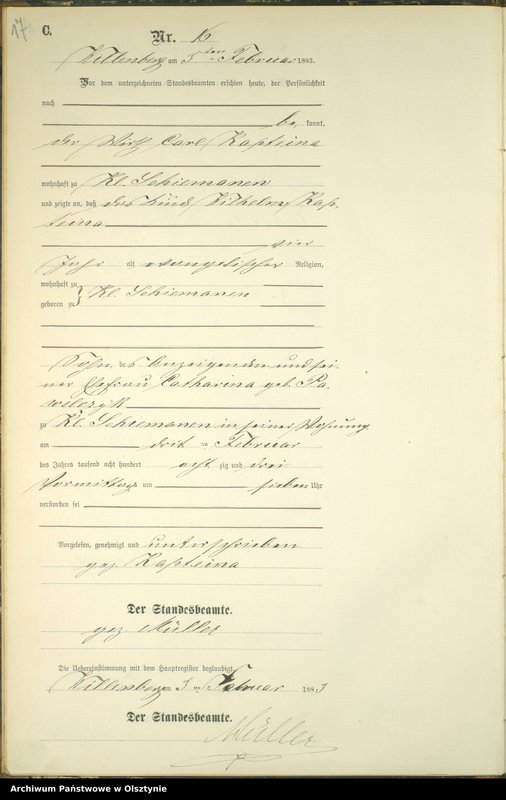 17
C.
Nr. 16
Willenberg am 5ten Februar 1883.
Vor dem unterzeichneten Standesbeamten erschien heute, der Persönlichkeit
nach
be kannt,
der Wirth Carl Kapteina
wohnhaft zu Kl. Schiemanen
und zeigte an, daß das Kind Wilhelm Kap-
teina
vier
Jahr alt evangelischer Religion,
wohnhaft zu
geboren zu } Kl. Schiemanen
Sohn des Anzeigenden und sei-
ner Ehefrau Catharina geb. Pa-
welczyk
zu Kl. Schiemanen in seiner Wohnung
am Februar
des Jahres tausend acht hundert acht zig und drei
Vormittags um sieben Uhr
verstorben sei
Vorgelesen, genehmigt und unterschrieben
gez. Kapteina
Der Standesbeamte.
gez Müller
Die Uebereinstimmung mit dem Hauptregister beglaubigt.
Willenberg am Februar 1883
Der Standesbeamte.
Müller
Archiwum Państwowe w Olsztynie